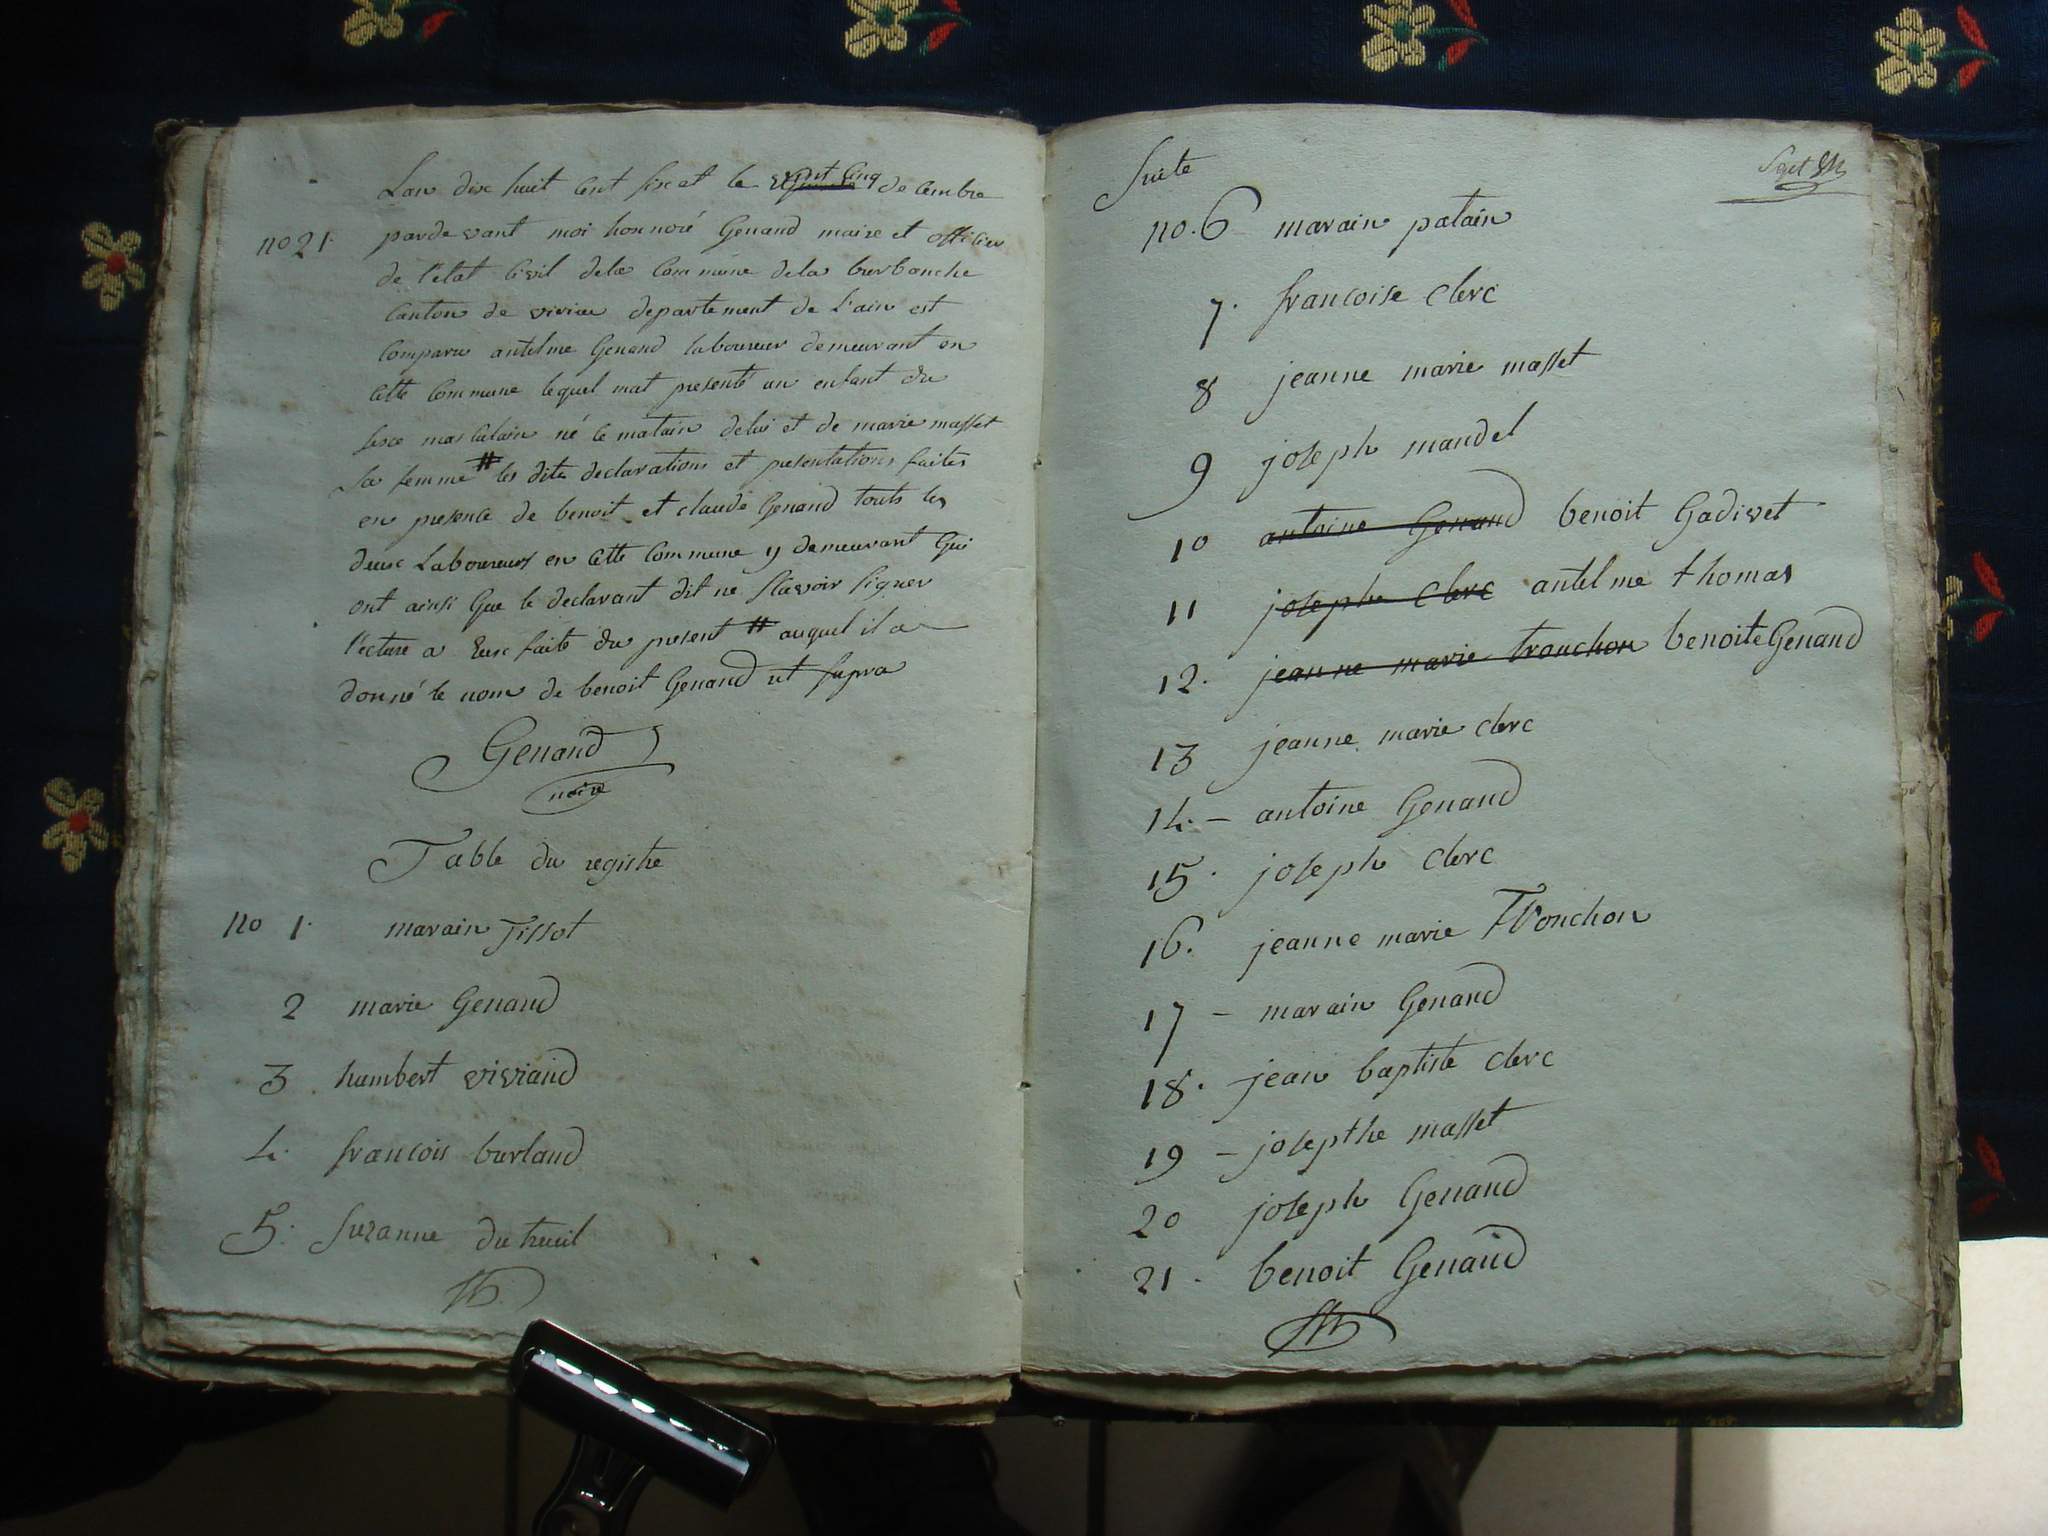 Lan dix huit cent six et le vingt cinq decembre
no 21. pardevant moi honnoré Genand maire et officier
de l'etat civil dela commune dela burbanche
canton de virieu departement de l'ain est
comparu antelme Genand laboureur demeurant en
cette commune lequel mat presenté un enfant du
sexe masculain né ce matain delui et de marie masset
sa femme # les dites declarations et presentations faites
en presence de benoit et claude Genand touts les
deux Laboureurs en cette commune y demeurant Qui
ont ainsi Que le declarant dit ne sçavoir signer
l'ecture a Eux faite du present # auquel il a
donné le nom de benoit Genand ut supra
Genand
maire
Table du registre
no 1. marain Tissot
2 marie Genand
3 humbert viviand
4. francois burland
5. suzanne dutreuil
Suite
no. 6 marain patain
7. francoise clerc
8 jeanne marie masset
9 joseph mandel
10 antoine Genand benoit Gadivet
11 josephe clerc antelme thomas
12. jeanne marie tronchon benoite Genand
13 jeanne marie clerc
14. – antoine Genand
15. joseph clerc
16. jeanne marie Tronchon
17 – marain Genand
18. jean baptiste clerc
19 – josepthe masset
20 joseph Genand
21. benoit Genand